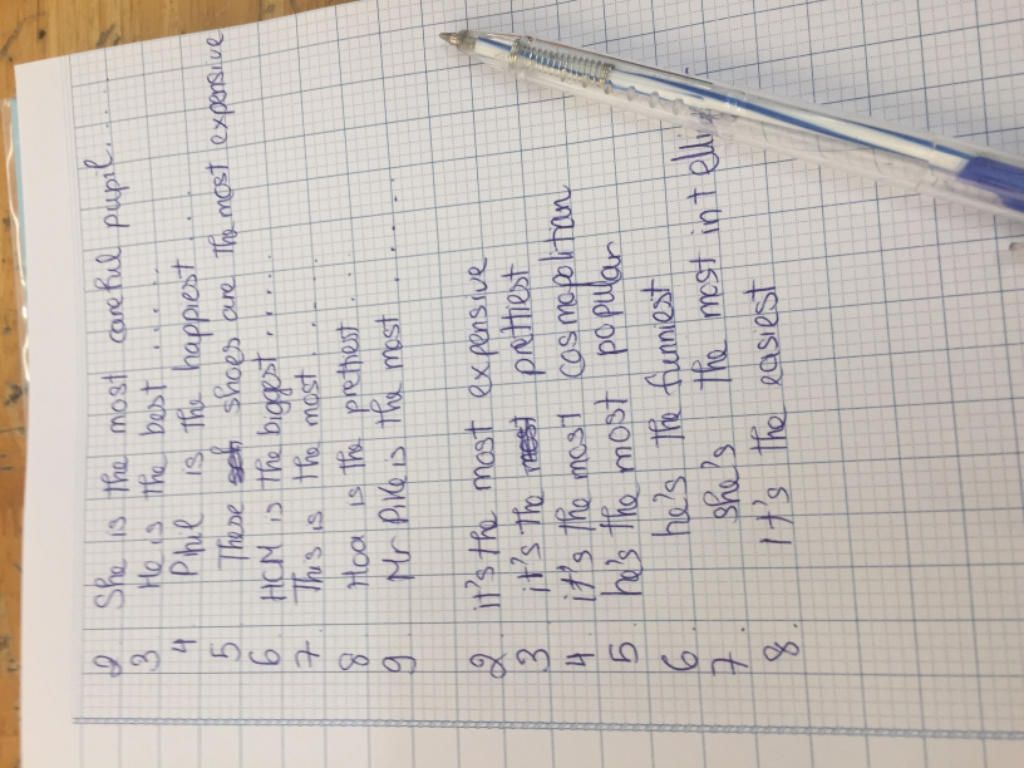 2 She is the most careful pupil....
3 He is the best .....
4 Phil is the happiest ...
5 These shoes are the most expensive
6. HCN is the biggest .....
7. This is the most ....
8 Hoa is the prettiest ..
9 Mr Pike is the most ....
2 it's the most expensive
3 it's the prettiest
4 it's the most cosmopolitan
5 he's the most popular
6. he's the funniest
7. she's the most
8. it's the easiest